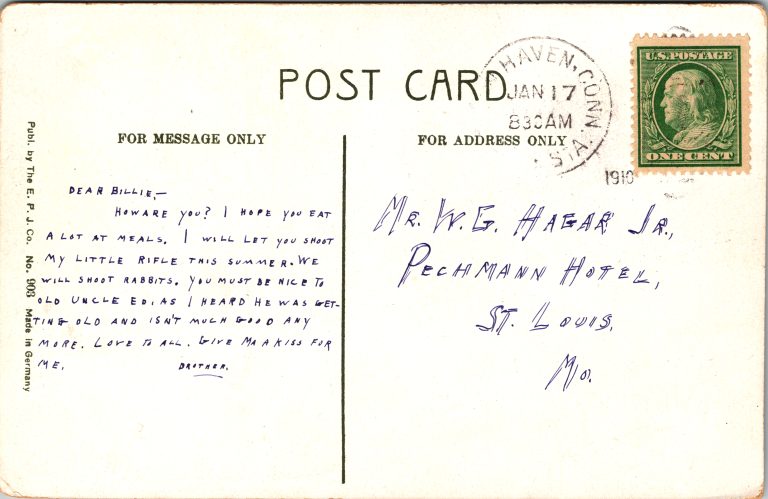 POST CARD
HAVEN, CONN
JAN 17
830AM
STA.
1910
U.S. POSTAGE
ONE CENT
FOR MESSAGE ONLY
FOR ADDRESS ONLY
Publ. by The E. P. J. Co. No. 903 Made in Germany
DEAR BILLIE,—
HOW ARE YOU? I HOPE YOU EAT
A LOT AT MEALS. I WILL LET YOU SHOOT
MY LITTLE RIFLE THIS SUMMER. WE
WILL SHOOT RABBITS. YOU MUST BE NICE TO
OLD UNCLE ED. AS I HEARD HE WAS GET-
TING OLD AND ISN'T MUCH GOOD ANY
MORE. LOVE TO ALL. GIVE MA A KISS FOR
ME. BROTHER.
MR. W. G. HAGAR JR.,
PECHMANN HOTEL,
ST. LOUIS.
MO.